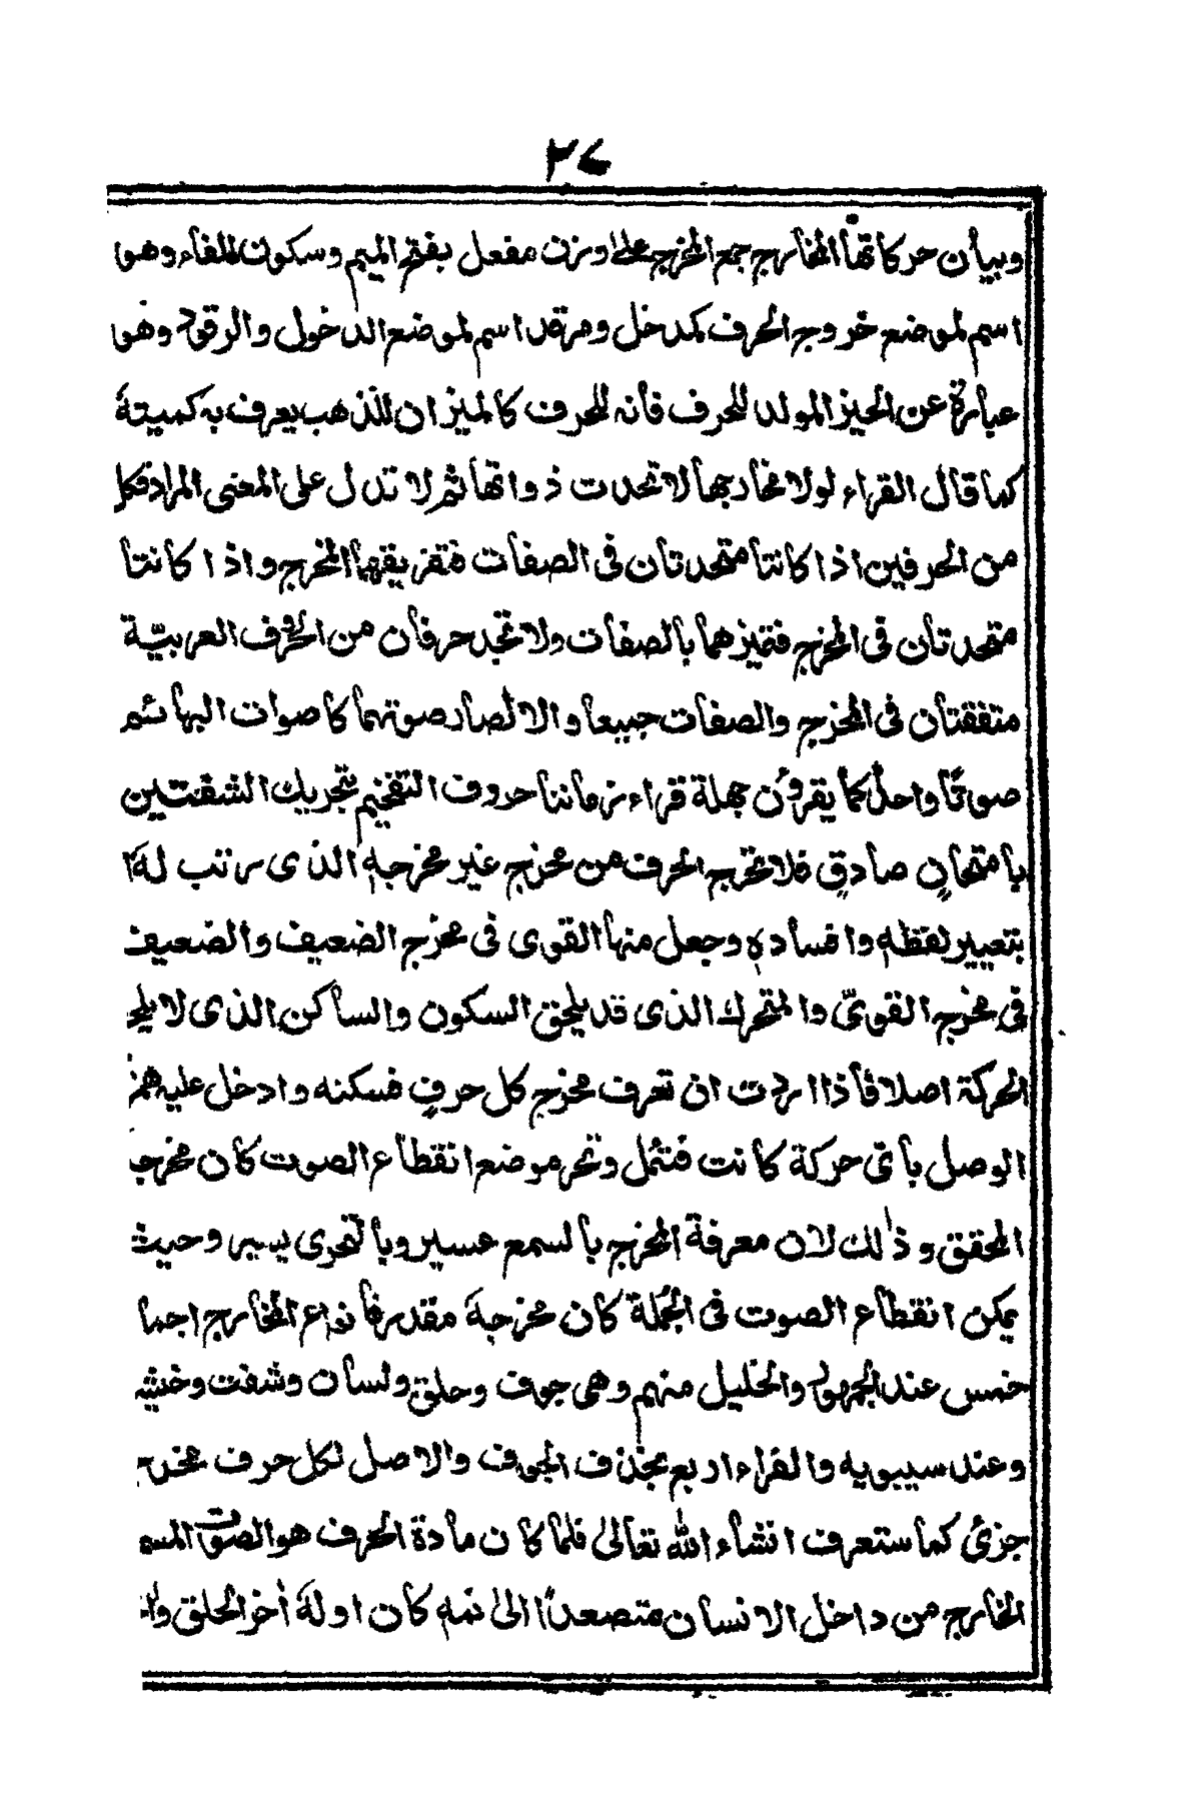 ٢٧
وبيان حركاتها المخارج جمع المخرج على وزن مفعل بفتح الميم وسكون الفاء وهو
اسم لموضع خروج الحرف كمدخل ومرقد اسم لموضع الدخول والرقود وهو
عبارة عن الحيز المولد للحرف فانه للحرف كالميزان للذهب يعرف به كميته
كما قال القراء لولا مخارجها لاتحدت ذواتها ثم لا تدل على المعنى المراد فكل
من الحرفين اذا كانتا متحدتان فى الصفات فتفريقهما المخرج واذا كانتا
متحدتان فى المخرج فتميزهما بالصفات ولا تجد حرفان من الحروف العربيّة
متفقتان فى المخرج والصفات جميعا والا لصار صوتهما كاصوات البهائم
صوتًا واحدًا كما يقرؤن جهلة قراء زماننا حروف التفخيم بتحريك الشفتين
بامتحانٍ صادقٍ فلا تخرج الحرف من مخرج غير مخرجه الذى رتب له
بتعيير لفظه وافساده وجعل منها القوى فى مخرج الضعيف والضعيف
فى مخرج القوىّ والمتحرك الذى قد يلحق السكون والساكن الذى لا يلحق
الحركة اصلا فاذا اردت ان تعرف مخرج كل حرفٍ فسكنه وادخل عليه همز
الوصل باىّ حركة كانت فتئمل وتحر موضع انقطاع الصوت كان مخرجه
المحقق وذلك لان معرفة المخرج بالسمع عسير وبالتحرى يسير وحيث
يمكن انقطاع الصوت فى الجملة كان مخرجه مقدر فانواع المخارج اجما
خمس عند الجمهور والخليل منهم وهى جوف وحلق ولسان وشفت وخيشو
وعند سيبويه والقراء اربع بحذف الجوف والاصل لكل حرف مخرج
جزئ كما ستعرف انشاء الله تعالى فلما كان مادة الحرف هو الصوت
الخارج من داخل الانسان متصعدًا الى فمه كان اوله آخر الحلق